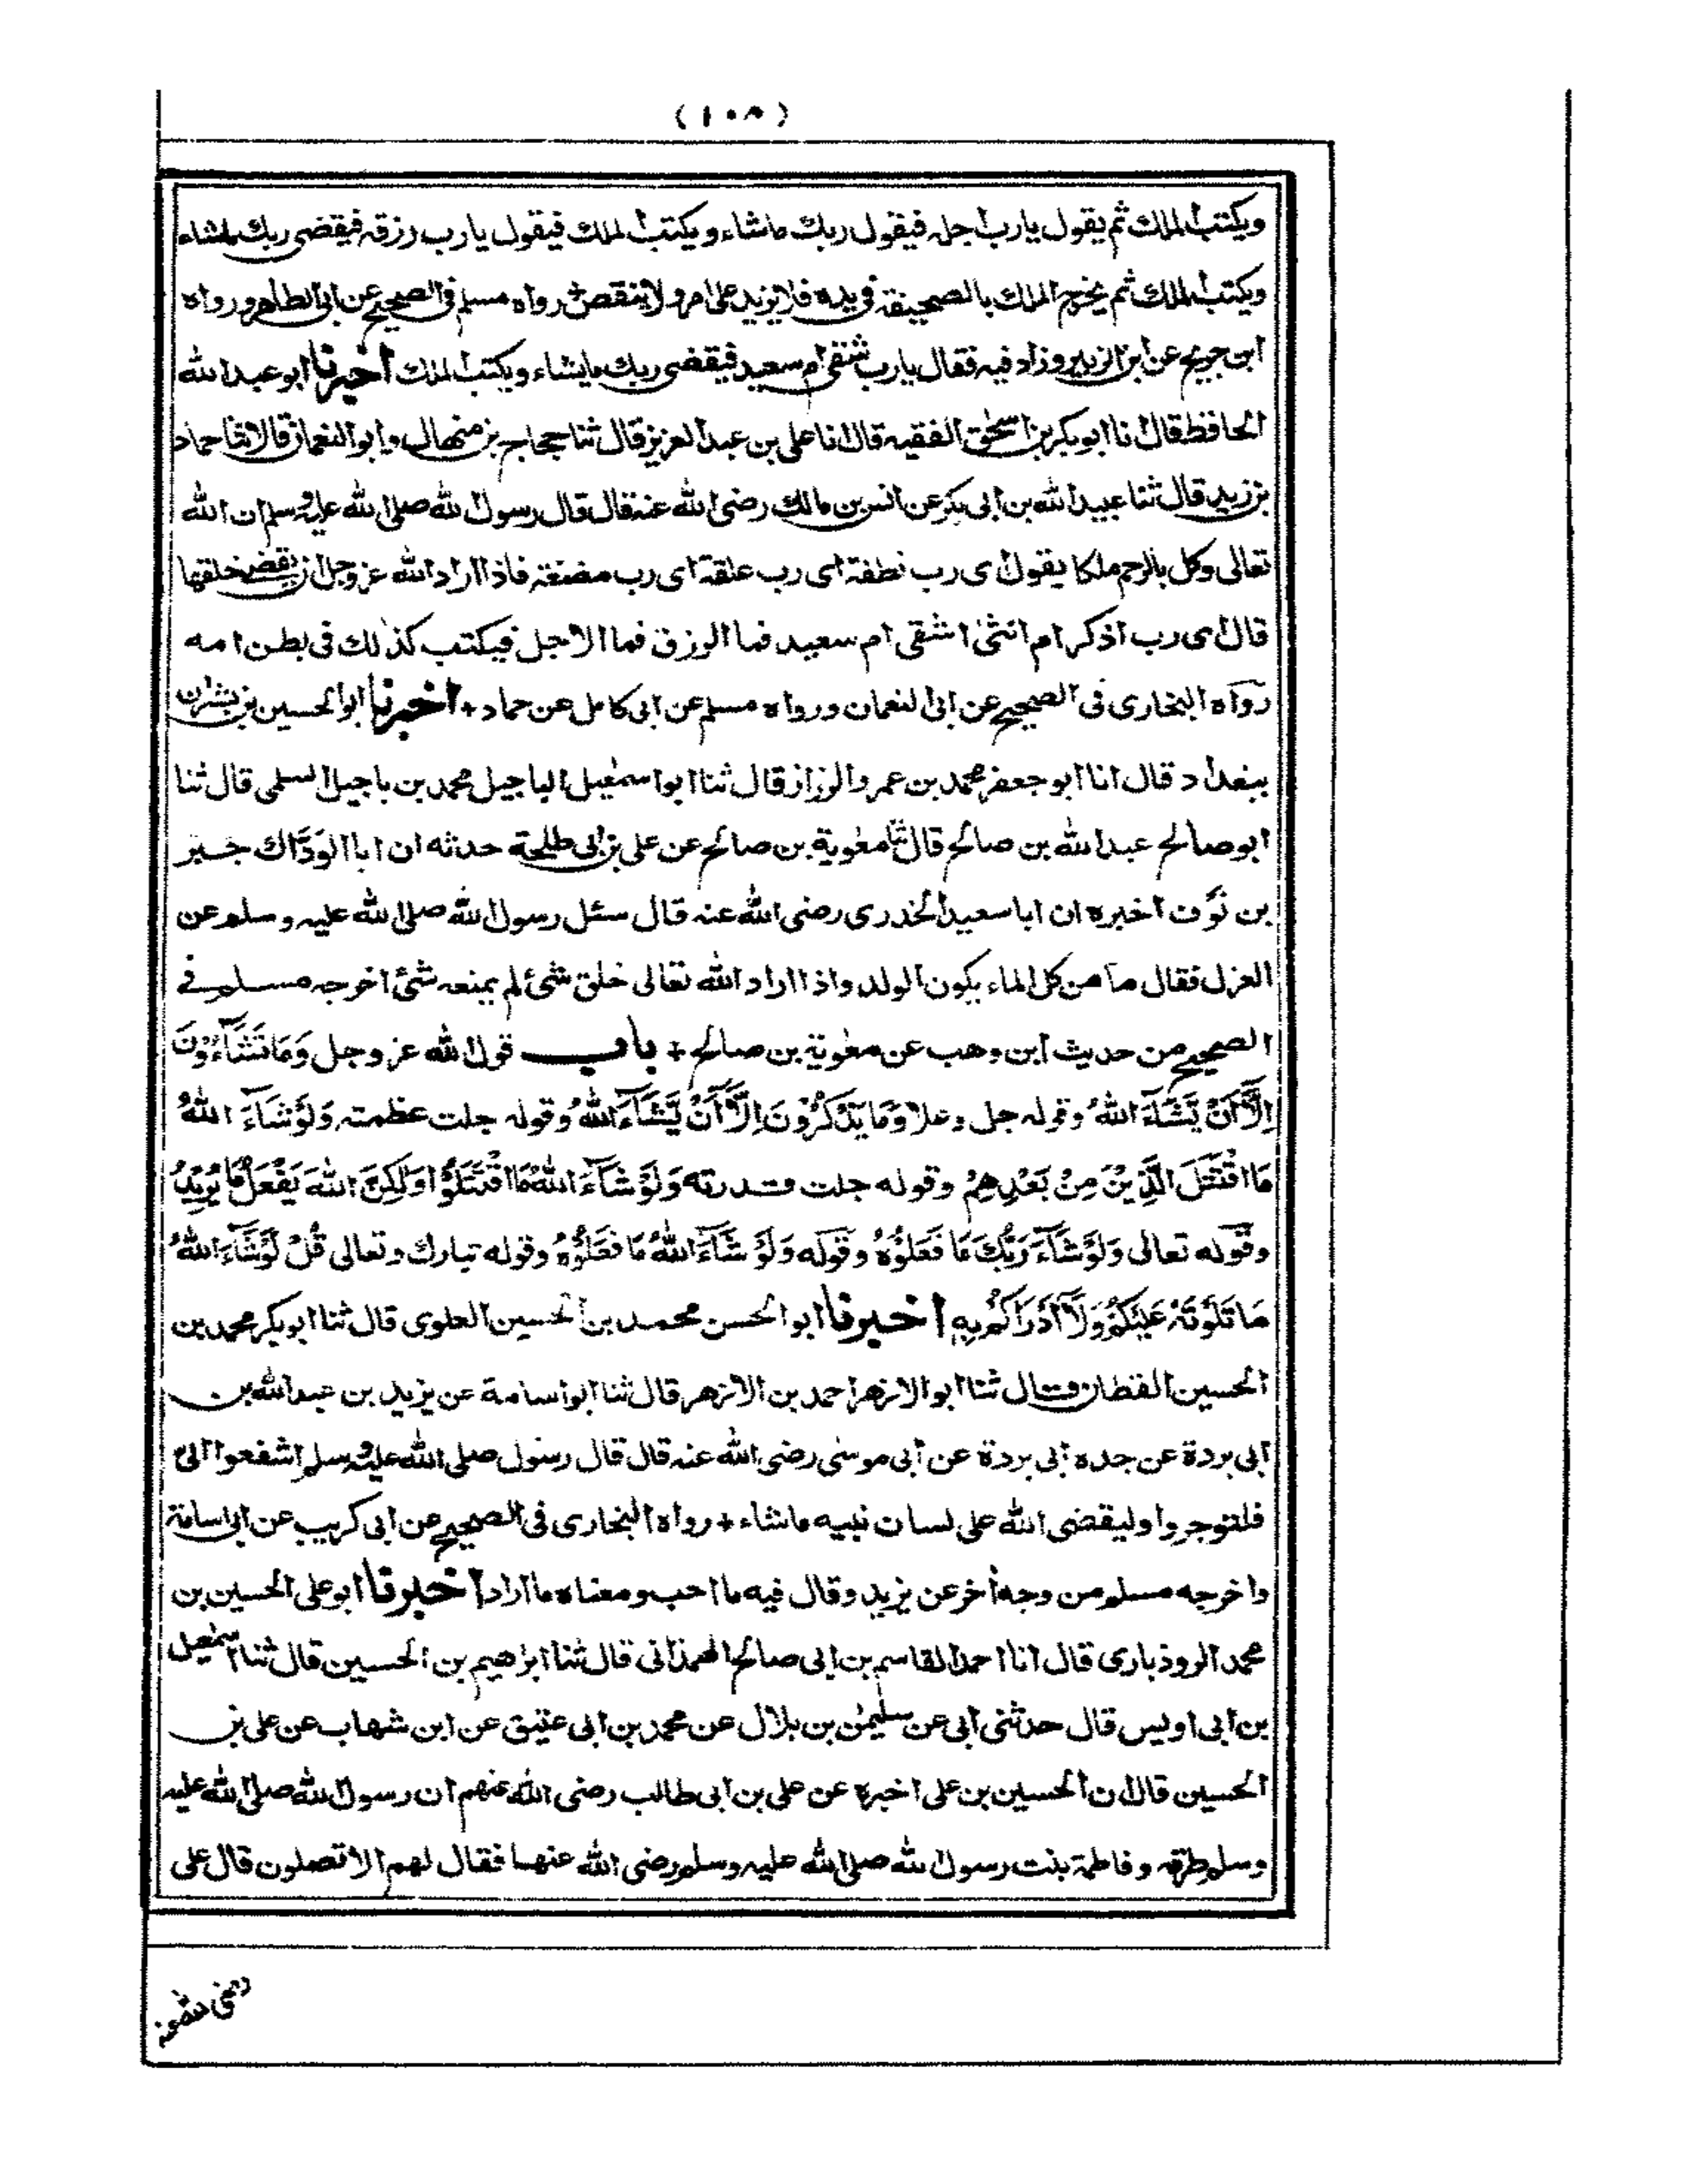 (١٠٨)
ويكتب الملك ثم يقول يارب اجله فيقول ربك ماشاء ويكتب الملك فيقول يارب رزقه فيقضى ربك ماشاء
ويكتب الملك ثم يخرج الملك بالصحيفة فى يده فلا يزيد على امر ولا ينقص + رواه مسلم فى الصحيح عن ابى الطاهر ورواه
ابن جريج عن ابى الزبير وزاد فيه فقال يارب شقى ام سعيد فيقضى ربك مايشاء ويكتب الملك اخبرنا ابو عبد الله
الحافظ قال انا ابو بكر بن اسحٰق الفقيه قال انا على بن عبد العزيز قال ثنا حجاج بن منهال وابو النعمان قالا ثنا حماد
بن زيد قال ثنا عبيد الله بن ابى بكر عن انس بن مالك رضى الله عنه قال قال رسول الله صلى الله عليه وسلم ان الله
تعالى وكل بالرحم ملكا يقول اى رب نطفة اى رب علقة اى رب مضغة فاذا اراد الله عز وجل ان يقضى خلقها
قال اى رب اذكر ام انثىٰ اشقى ام سعيد فما الرزق فما الاجل فيكتب كذٰلك فى بطن امه
رواه البخارى فى الصحيح عن ابى النعمان ورواه مسلم عن ابى كامل عن حماد + اخبرنا ابو الحسين بن بشران
ببغداد قال انا ابو جعفر محمد بن عمرو الرزاز قال ثنا ابو اسمٰعيل الباجيل محمد بن باجيل السلمى قال ثنا
ابو صالح عبد الله بن صالح قال ثنا معٰوية بن صالح عن على بن ابى طلحة حدثه ان ابا الوَدَّاك جبر
بن نَوْف اخبره ان ابا سعيد الخدرى رضى الله عنه قال سئل رسول الله صلى الله عليه وسلم عن
العزل فقال ما من كل الماء يكون الولد واذا اراد الله تعالى خلق شئ لم يمنعه شئ اخرجه مسلم فى
الصحيح من حديث ابن وهب عن معٰوية بن صالح + باب قول الله عز وجل وَمَا تَشَآءُوْنَ
اِلَّآ اَنْ يَّشَآءَ اللهُ وقوله جل وعلا وَمَا يَذْكُرُوْنَ اِلَّآ اَنْ يَّشَآءَ اللهُ وقوله جلت عظمته وَلَوْ شَآءَ اللهُ
مَا اقْتَتَلَ الَّذِيْنَ مِنْ بَعْدِهِمْ وقوله جلت قدرته وَلَوْ شَآءَ اللهُ مَا اقْتَتَلُوْا وَلٰكِنَّ اللهَ يَفْعَلُ مَا يُرِيْدُ
وقوله تعالى وَلَوْ شَآءَ رَبُّكَ مَا فَعَلُوْهُ وقوله وَلَوْ شَآءَ اللهُ مَا فَعَلُوْهُ وقوله تبارك وتعالى قُلْ لَوْ شَآءَ اللهُ
مَا تَلَوْتُهٗ عَلَيْكُمْ وَلَآ اَدْرَاكُمْ بِهٖ اخبرنا ابو الحسن محمد بن الحسين العلوى قال ثنا ابو بكر محمد بن
الحسين القطان قال ثنا ابو الازهر احمد بن الازهر قال ثنا ابو اسامة عن يزيد بن عبد الله بن
ابى بردة عن جده ابى بردة عن ابى موسٰى رضى الله عنه قال قال رسول صلى الله عليه وسلم اشفعوا الىّ
فلتوجروا وليقضى الله على لسان نبيه ماشاء + رواه البخارى فى الصحيح عن ابى كريب عن ابى اسامة
واخرجه مسلم من وجه أخر عن يزيد وقال فيه ما احب ومعناه ما اراد اخبرنا ابو على الحسين بن
محمد الروذبارى قال انا احمد القاسم بن ابى صالح الهمذانى قال ثنا ابرٰهيم بن الحسين قال ثنا اسمٰعيل
بن ابى اويس قال حدثنى ابى عن سليمٰن بن بلال عن محمد بن ابى عتيق عن ابن شهاب عن على بن
الحسين قال ان الحسين بن على اخبره عن على بن ابى طالب رضى الله عنهم ان رسول الله صلى الله عليه
وسلم طرقه وفاطمة بنت رسول الله صلى الله عليه وسلم رضى الله عنها فقال لهم الا تصلون قال على
رضى الله عنه